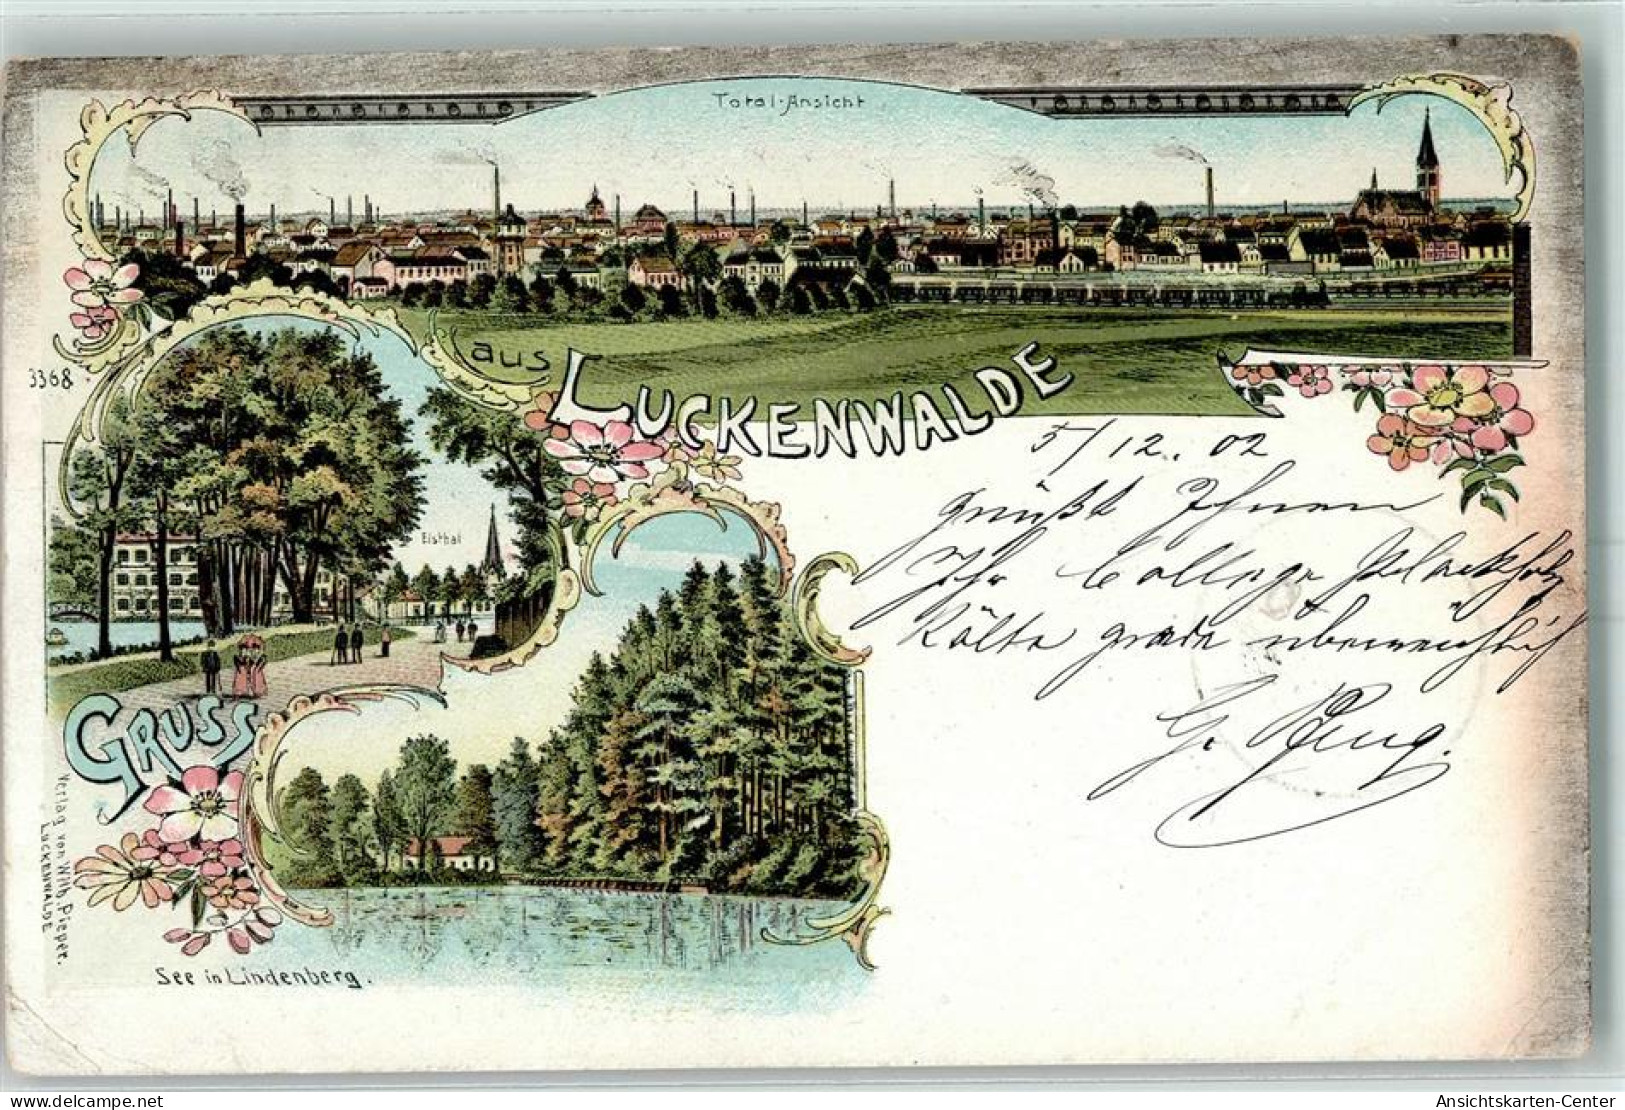 Total-Ansicht
3368
aus LUCKENWALDE
Elsthal
GRUSS
5/12. 02
grüßt Ihnen
Ihr College
Kälte grade
G.
Verlag von Wilh. Pieper.
LUCKENWALDE
See in Lindenberg.
www.delcampe.net
Ansichtskarten-Center